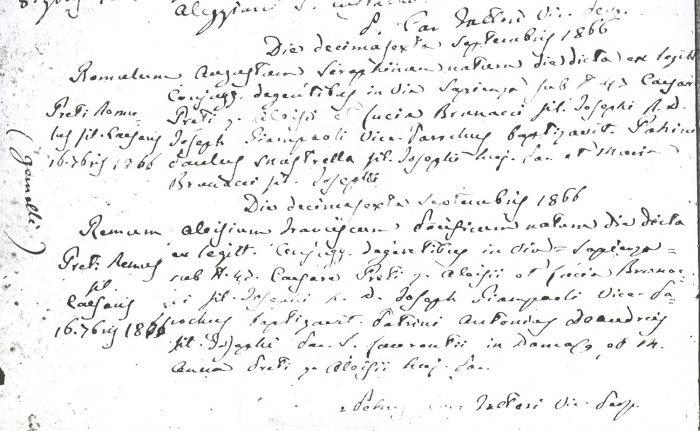 P. Car Tattori Vic. 
Die decimasexta Septembris 1866
Romulum Augustum Seraphinum natum die dicta ex legitt.
Conjugg. degentibus in via Sapienza sub N. 47. Caesar
Preti Romu-
lus fil. Caesaris
16. 7bris 1866
Preti q. Aloisii et Lucia Brunacci fil. Josephi R. D.
Joseph Giampaoli Vice-Parochus baptizavit. Patrini
Paulus fil. Josephi huj. Par. et Maria
Brunacci fil. Josephi
(gemelli)
Die decimasexta Septembris 1866
Remum Aloisium Franciscum natum die dicta
Preti Remus
fil.
Caesaris
16. 7bris 1866
ex legitt. Conjugg. degentibus in via Sapienza
sub N. 47. Caesare Preti q. Aloisii et Lucia Brunac-
ci fil. Josephi R. D. Joseph Giampaoli Vice-Pa-
rochus baptizavit. Patrini Antonius Deandreis
fil. Josephi Par. S. Laurentii in Damaso, et
Anna Preti q. Aloisii huj. Par.
Tattori Vic. Parp.